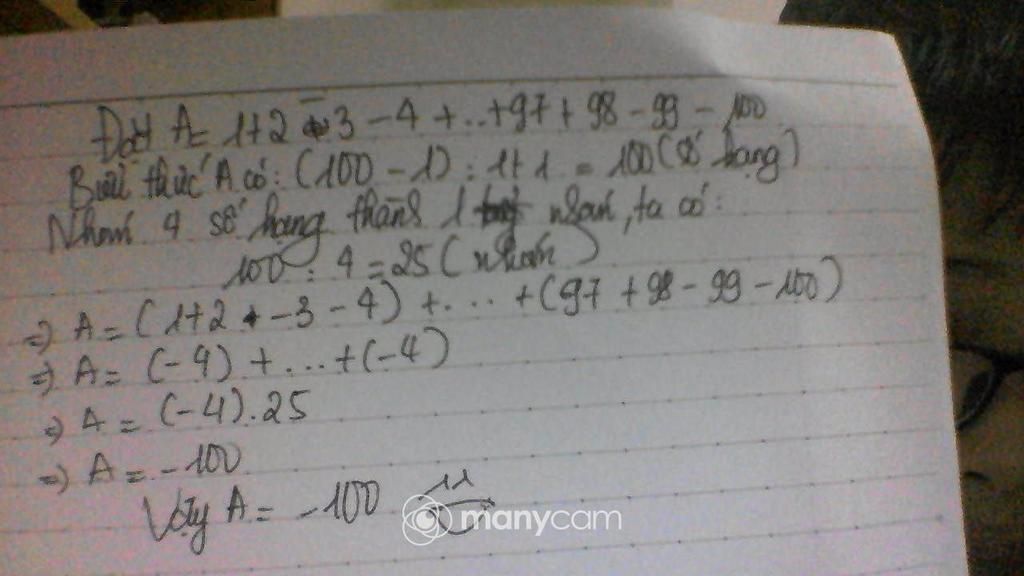 Đặt A = 1+2 - 3 - 4 + ... + 97 + 98 - 99 - 100
Biểu thức A có: (100 - 1) : 1+1 = 100 (số hạng)
Nhóm 4 số hạng thành 1 nhóm, ta có:
100 : 4 = 25 (nhóm)
=> A = (1+2 - 3 - 4) + ... + (97 + 98 - 99 - 100)
=> A = (-4) + ... + (-4)
=> A = (-4) . 25
=> A = - 100
Vậy A = - 100
manycam